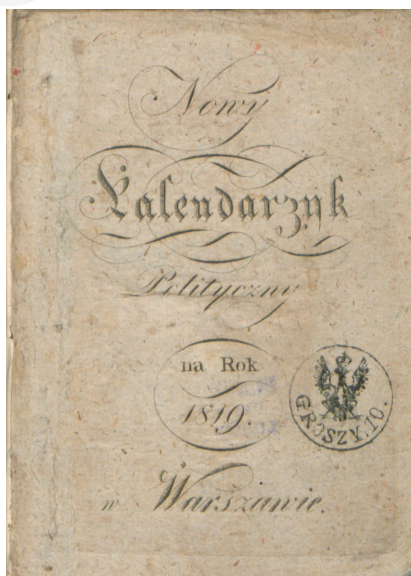 Nowy
Kalendarzyk
Polityczny
na Rok
1819.
GROSZY.10.
w Warszawie.